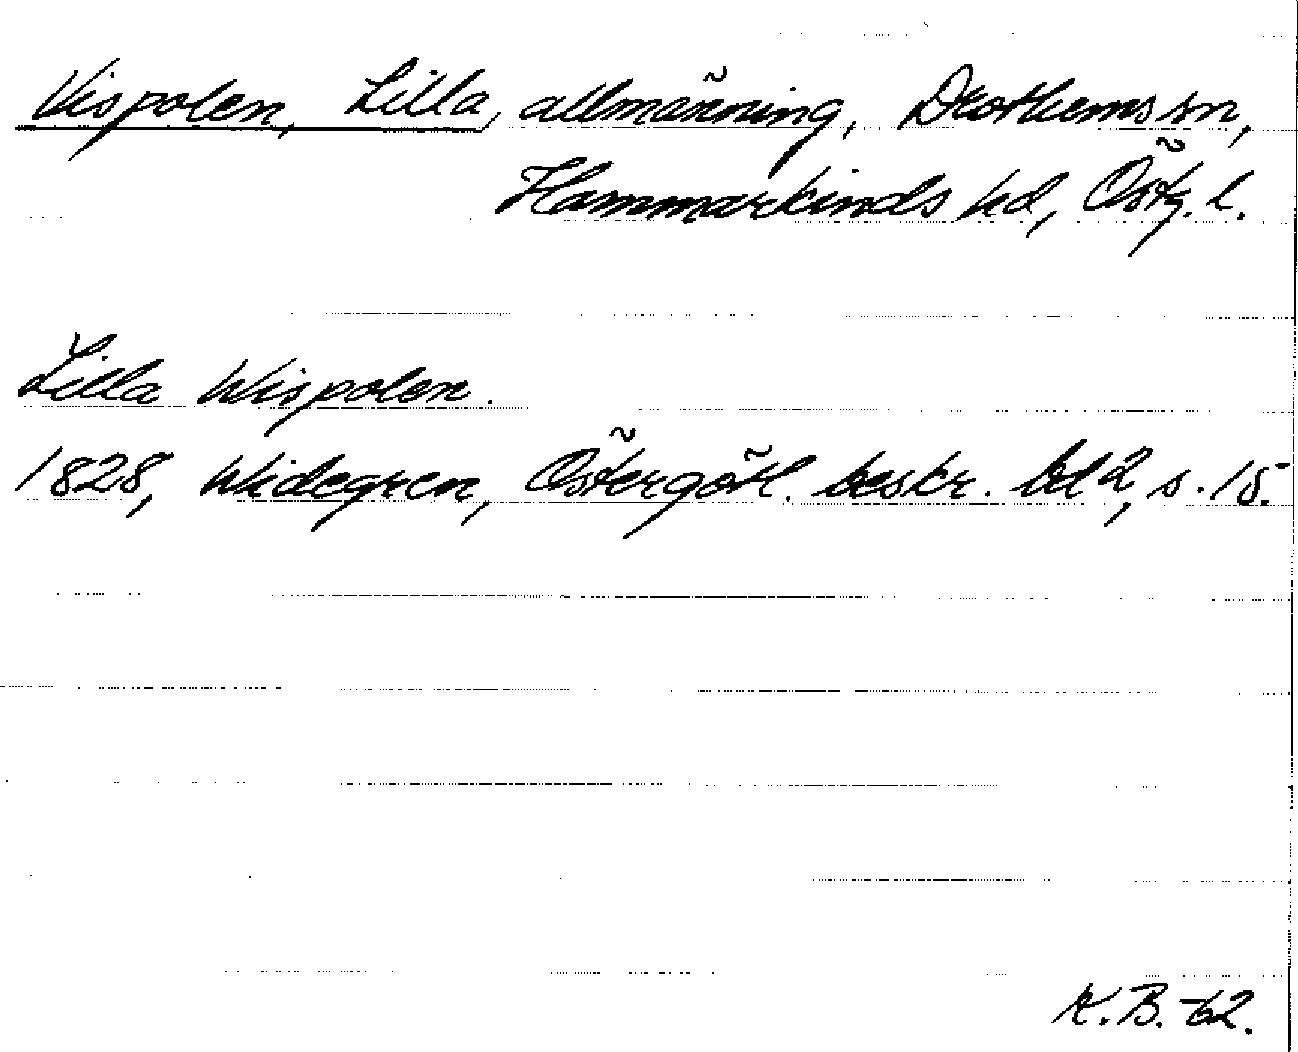 Vispolen, Lilla, allmänning, Drothems sn,
Hammarkinds hd, Östg. l.
Lilla Wispolen.
1828, Widegren, Östergötl. beskr. bd 2, s. 15.
K.B. -62.